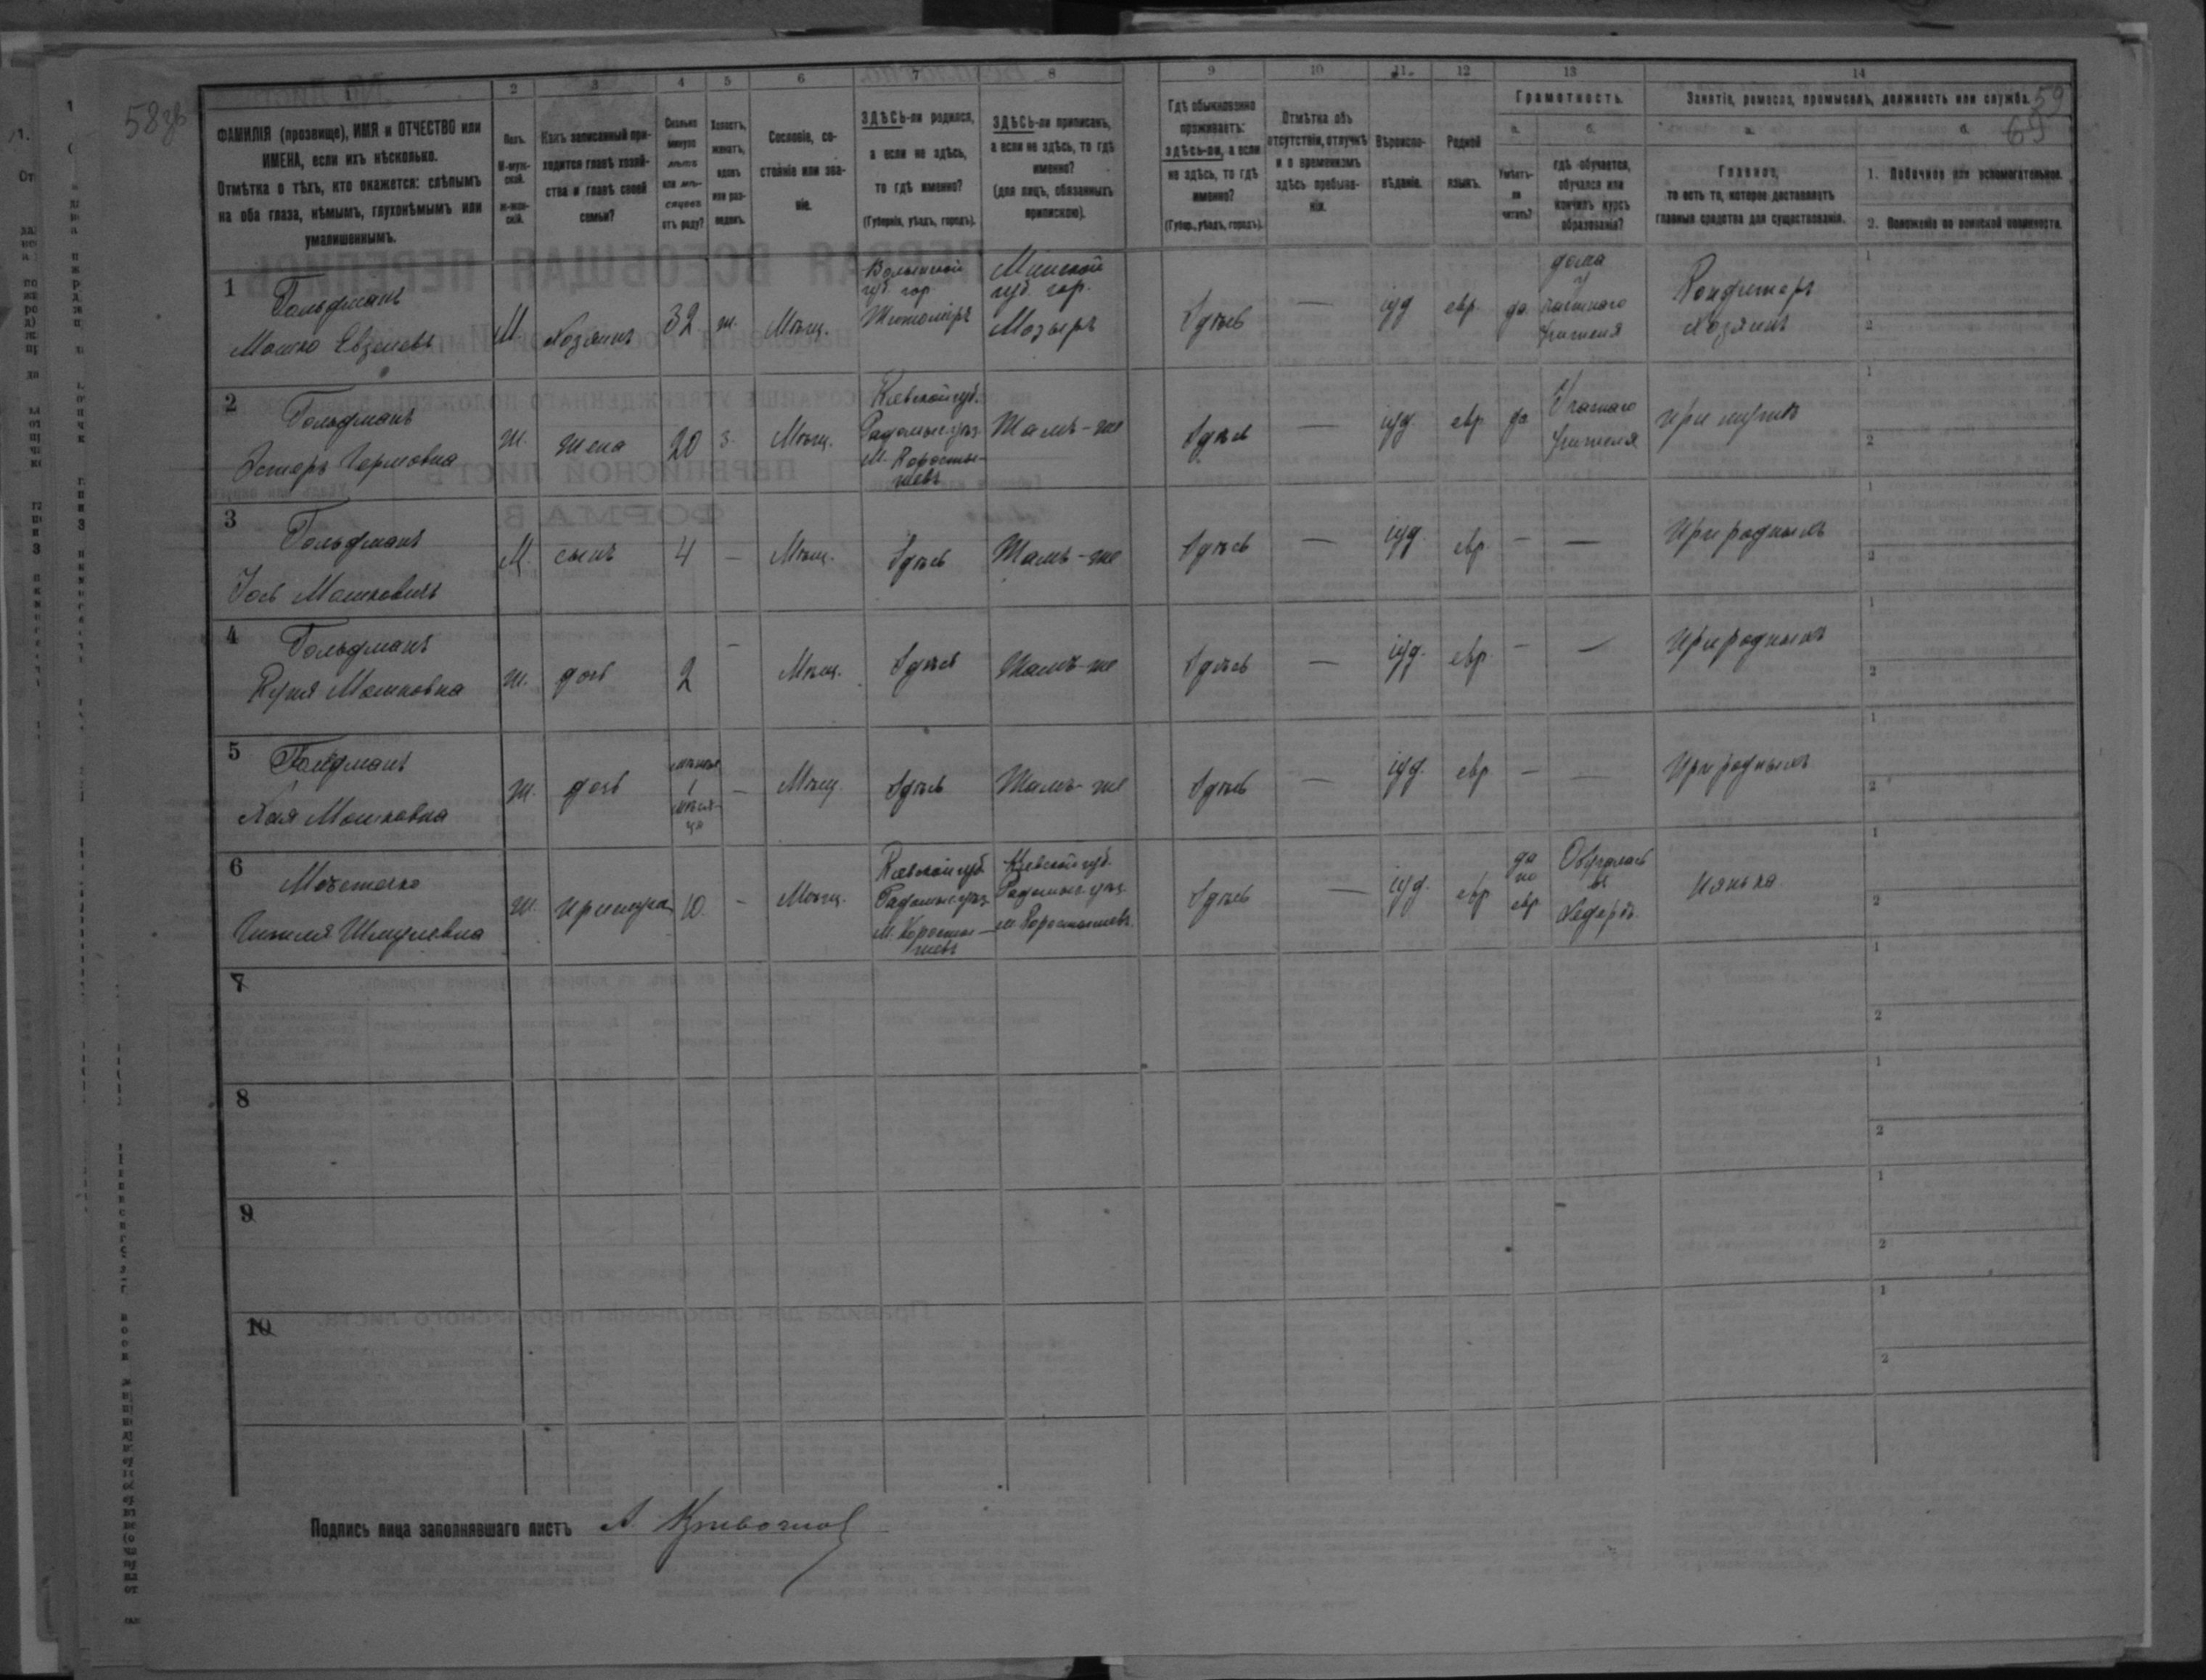 58зв
59
69
1 2 3 4 5 6 7 8 9 10 11 12 13 14
ФАМИЛІЯ (прозвище), ИМЯ и ОТЧЕСТВО или
ИМЕНА, если ихъ нѣсколько.
Отмѣтка о тѣхъ, кто окажется: слѣпымъ
на оба глаза, нѣмымъ, глухонѣмымъ или
умалишеннымъ.
Полъ.
М-муж-
ской.
ж-жен-
скій.
Какъ записанный при-
ходится главѣ хозяй-
ства и главѣ своей
семьи?
Сколько
минуло
лѣтъ
или мѣ-
сяцевъ
отъ роду?
Холостъ,
женатъ,
вдовъ
или раз-
веденъ.
Сословіе, со-
стояніе или зва-
ніе.
ЗДѢСЬ-ли родился,
а если не здѣсь,
то гдѣ именно?
(Губернія, уѣздъ, городъ).
ЗДѢСЬ-ли приписанъ,
а если не здѣсь, то гдѣ
именно?
(для лицъ, обязанныхъ
припискою).
Гдѣ обыкновенно
проживаетъ:
здѣсь-ли, а если
не здѣсь, то гдѣ
именно?
(Губер., уѣздъ, городъ).
Отмѣтка объ
отсутствіи, отлучкѣ
и о временномъ
здѣсь пребыва-
ніи.
Вѣроиспо-
вѣданіе.
Родной
языкъ.
Грамотность.
а.
Умѣетъ-
ли
читать?
б.
гдѣ обучается,
обучался или
кончилъ курсъ
образованія?
Занятіе, ремесло, промыселъ, должность или служба.
а.
Главное,
то есть то, которое доставляетъ
главныя средства для существованія.
б.
1. Побочное или вспомогательное.
2. Положеніе по воинской повинности.
1
Гольдманъ
Мошко Евзелевъ
М
Хозяинъ
32
ж.
Мѣщ.
Волынской
губ. гор.
Житоміръ
Минской
губ. гор.
Мозырь
Здѣсь
—
іуд
евр.
да
дома
у
частнаго
учителя
Кондитеръ
Хозяинъ
1
2
2
Гольдманъ
Эстеръ
ж.
жена
20
з.
Мѣщ.
Кіевской губ.
Радомысл. уѣз.
М. Коросты-
шевъ
Тамъ-же
Здѣсь
—
іуд.
евр
да
У частнаго
учителя
при мужѣ
1
2
3
Гольдманъ
Іось Мошковичъ
М.
сынъ
4
—
Мѣщ.
Здѣсь
Тамъ-же
Здѣсь
—
іуд.
евр.
—
—
При родныхъ
1
2
4
Гольдманъ
Мошковна
ж.
дочь
2
—
Мѣщ.
Здѣсь
Тамъ-же
Здѣсь
—
іуд.
евр.
—
—
При родныхъ
1
2
5
Гольдманъ
Хая Мошковна
ж.
дочь
менѣе
1
мѣся-
ца
—
Мѣщ.
Здѣсь
Тамъ-же
Здѣсь
—
іуд.
евр.
—
—
При родныхъ
1
2
6
Шмулевна
ж.
прислуга
10.
—
Мѣщ.
Кіевской губ.
Радомысл. уѣз.
М. Коросты-
шевъ
Кіевской губ.
Радомысл. уѣз.
м. Коростышевъ
Здѣсь
—
іуд.
евр
да
по
евр
Обучалась
въ
Хедерѣ.
Нянька
1
2
7
1
2
8
1
2
9
1
2
10
1
2
Подпись лица заполнявшаго листъ А.